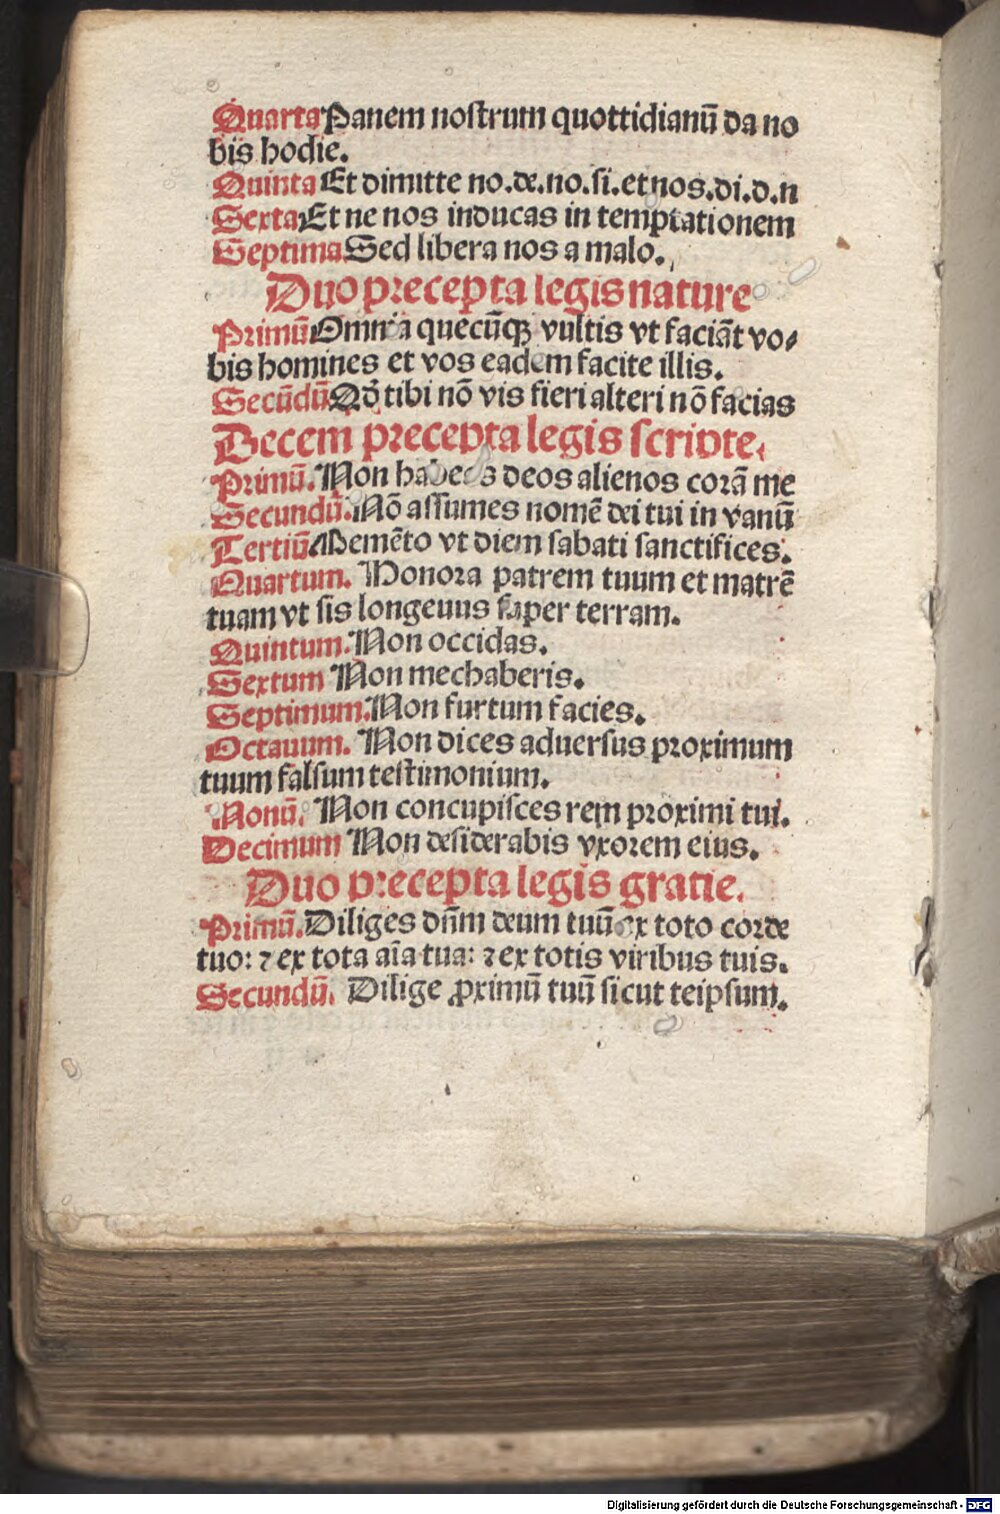 Quarta Panem nostrum quottidianū da no
bis hodie.
Quinta Et dimitte no.de.no.si.et nos.di.d.n
Sexta Et ne nos inducas in temptationem
Septima Sed libera nos a malo.
Duo precepta legis nature
Primū Omnia quecūqꝫ vultis vt faciāt vo⸗
bis homines et vos eadem facite illis.
Secūdū Qđ tibi nō vis fieri alteri nō facias
Decem precepta legis scripte.
Primū. Non habebis deos alienos corā me
Secundū. Nō assumes nomē dei tui in vanū
Tertiū Memēto vt diem sabati sanctifices.
Quartum. Honora patrem tuum et matrē
tuam vt sis longeuus super terram.
Quintum. Non occidas.
Sextum Non mechaberis.
Septimum. Non furtum facies.
Octauum. Non dices aduersus proximum
tuum falsum testimonium.
Nonū. Non concupisces rem proximi tui.
Decimum Non desiderabis vxorem eius.
Duo precepta legis gratie.
Primū. Diliges dn̄m deum tuū ex toto corde
tuo: ⁊ ex tota aīa tua: ⁊ ex totis viribus tuis.
Secundū. Dilige ꝓximū tuū sicut teipsum.
Digitalisierung gefördert durch die Deutsche Forschungsgemeinschaft - DFG